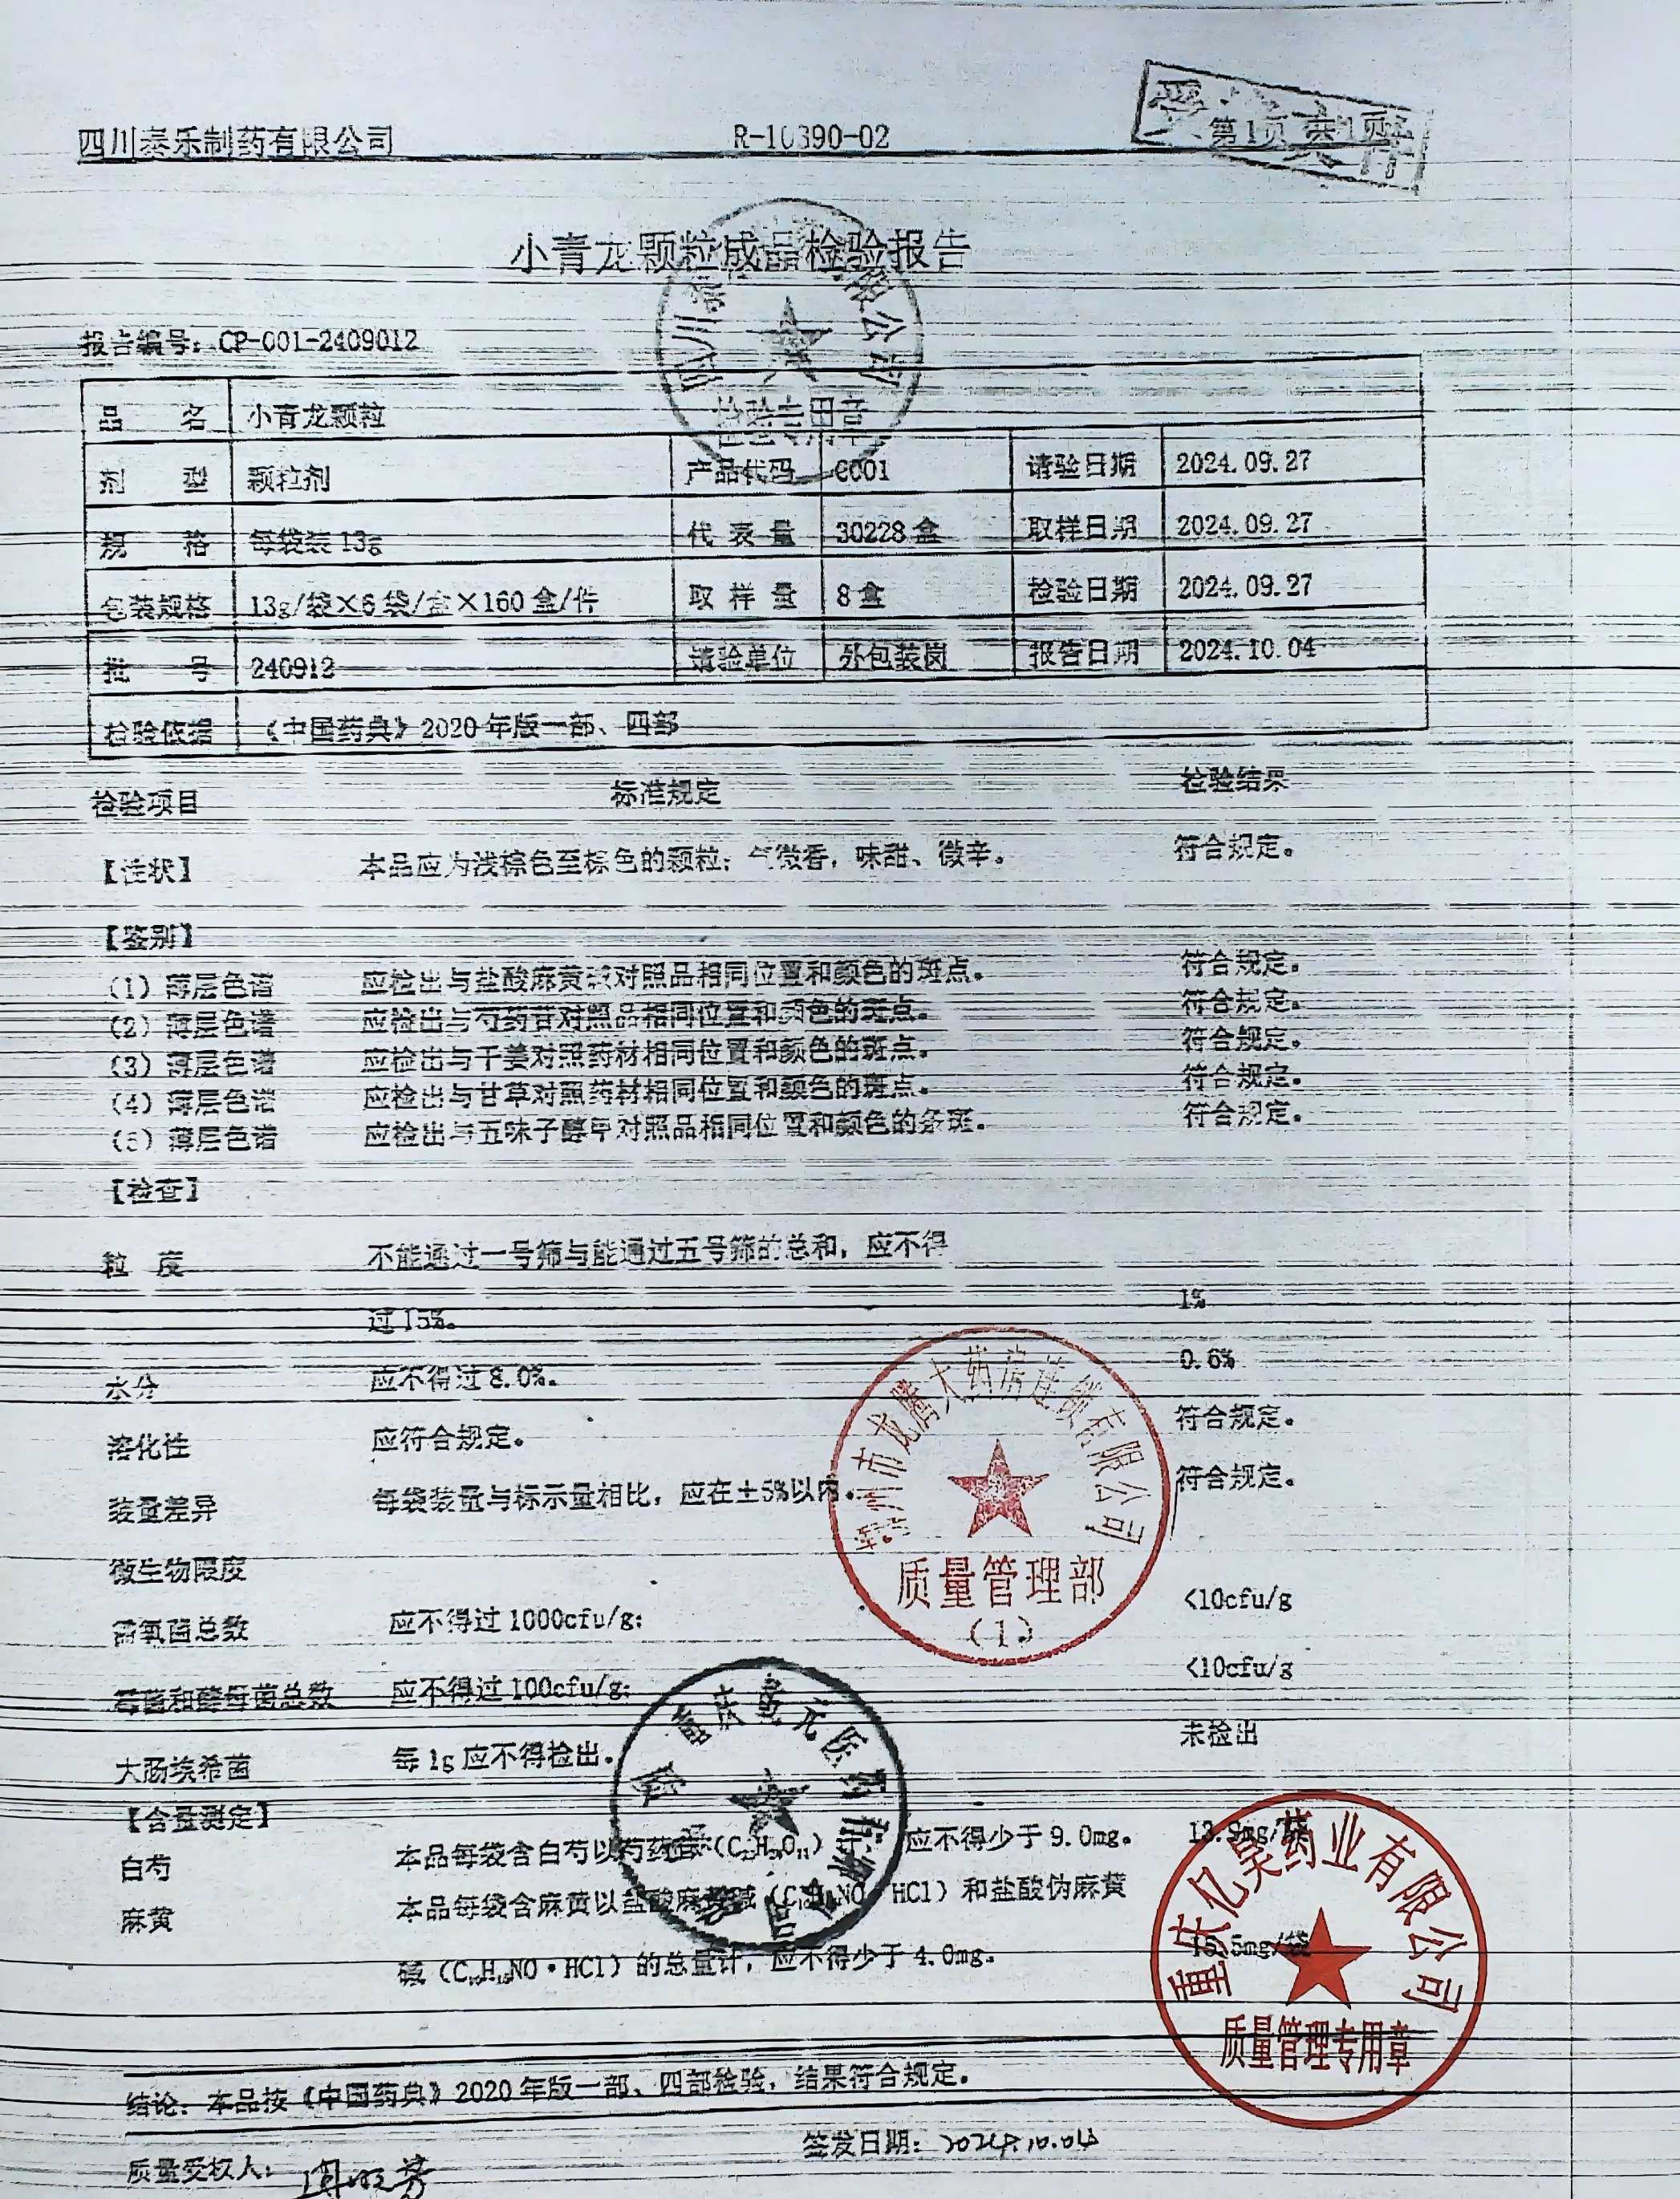 四川泰乐制药有限公司 R-10390-02 第1页 共1页
小青龙颗粒成品检验报告
四川泰 限公司
检验专用章
报告编号：CP-001-2409012
品 名 小青龙颗粒
剂 型 颗粒剂 产品代码 C001 请验日期 2024.09.27
规 格 每袋装13g 代表量 30228盒 取样日期 2024.09.27
包装规格 13g/袋×6袋/盒×160盒/件 取样量 8盒 检验日期 2024.09.27
批 号 240912 请验单位 外包装岗 报告日期 2024.10.04
检验依据 《中国药典》2020年版一部、四部
检验项目 标准规定 检验结果
【性状】 本品应为浅棕色至棕色的颗粒；气微香，味甜、微辛。 符合规定。
【鉴别】
（1）薄层色谱 应检出与盐酸麻黄碱对照品相同位置和颜色的斑点。 符合规定。
（2）薄层色谱 应检出与芍药苷对照品相同位置和颜色的斑点。 符合规定。
（3）薄层色谱 应检出与干姜对照药材相同位置和颜色的斑点。 符合规定。
（4）薄层色谱 应检出与甘草对照药材相同位置和颜色的斑点。 符合规定。
（5）薄层色谱 应检出与五味子醇甲对照品相同位置和颜色的条斑。 符合规定。
【检查】
粒 度 不能通过一号筛与能通过五号筛的总和，应不得
过15%。 1%
水分 应不得过8.0%。 0.6%
溶化性 应符合规定。 符合规定。
装量差异 每袋装量与标示量相比，应在±5%以内。 符合规定。
市龙腾大药房连锁有限公司
质量管理部
（1）
微生物限度
需氧菌总数 应不得过1000cfu/g； <10cfu/g
霉菌和酵母菌总数 应不得过100cfu/g； <10cfu/g
大肠埃希菌 每1g应不得检出。 未检出
【含量测定】
白芍 本品每袋含白芍以芍药苷（C₂₃H₂₈O₁₁）计，应不得少于9.0mg。 13.9mg/袋
麻黄 本品每袋含麻黄以盐酸麻黄碱（C₁₀H₁₅NO·HCl）和盐酸伪麻黄
碱（C₁₀H₁₅NO·HCl）的总量计，应不得少于4.0mg。 15.5mg/袋
重庆亿昊药业有限公司
质量管理专用章
结论：本品按《中国药典》2020年版一部、四部检验，结果符合规定。
质量受权人： 签发日期：2024.10.04